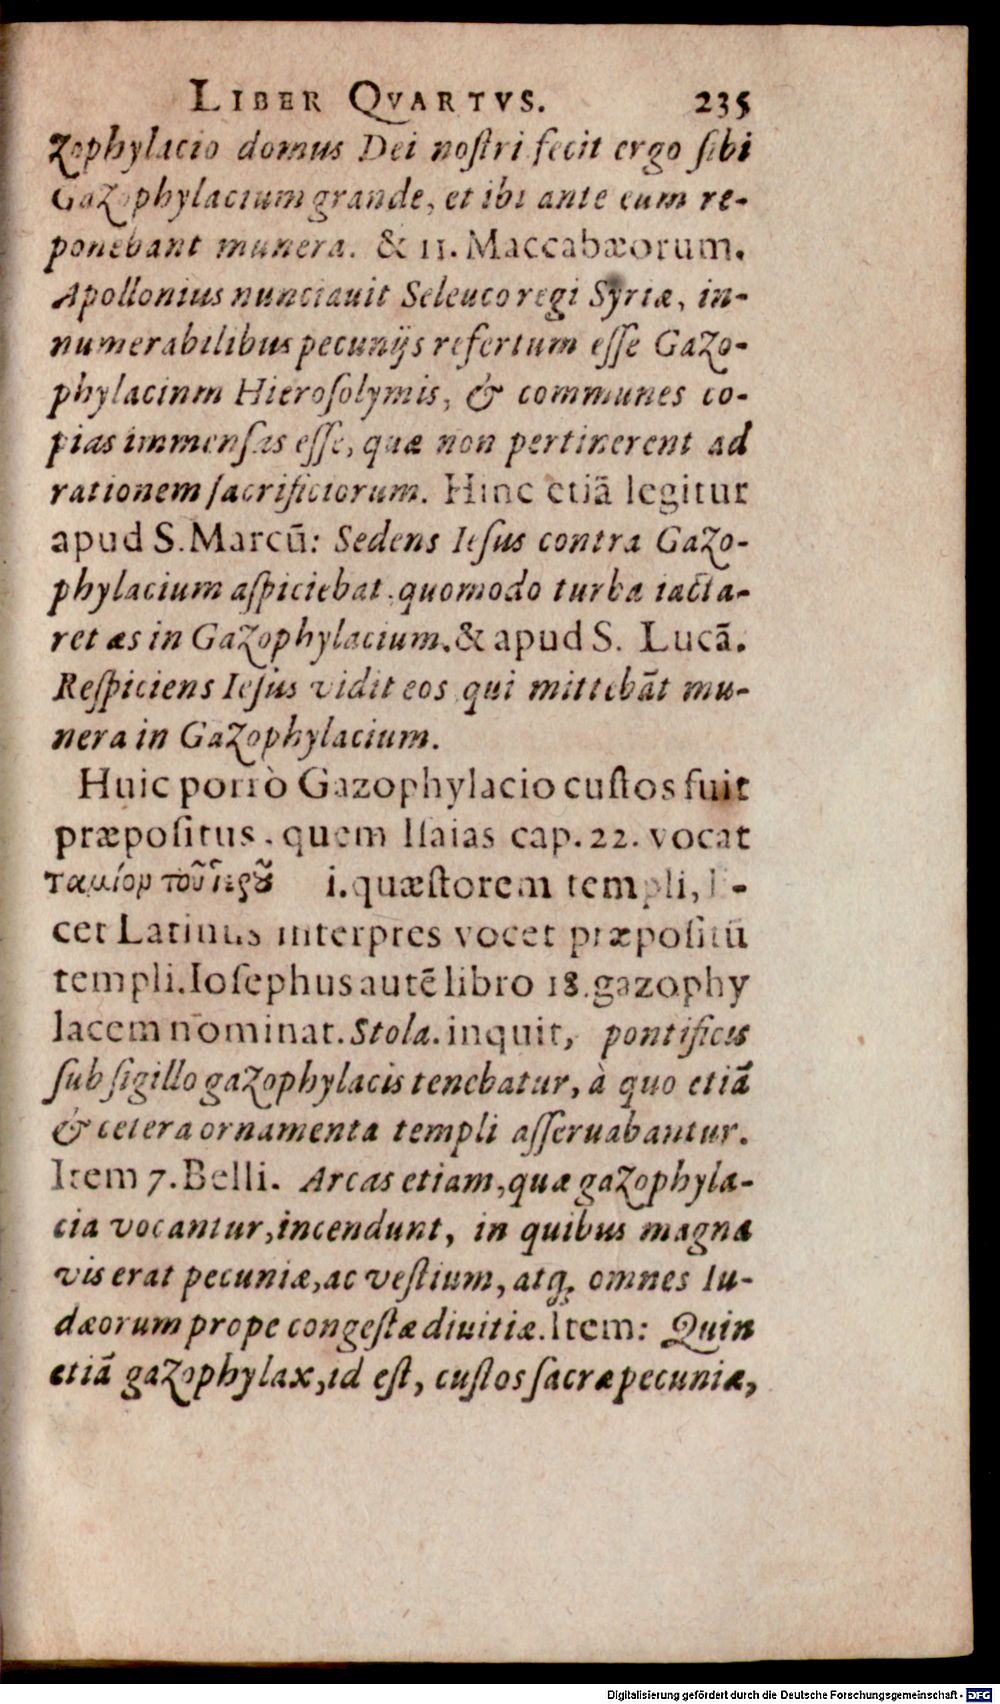 LIBER QVARTVS. 235
zophylacio domus Dei noſtri fecit ergo ſibi
Gazophylacium grande, et ibi ante eum re-
ponebant munera. & 11. Maccabæorum.
Apollonius nunciauit Seleuco regi Syriæ, in-
numerabilibus pecunijs refertum eſſe Gazo-
phylacinm Hieroſolymis, & communes co-
pias immenſas eſſe, quæ non pertinerent ad
rationem ſacrificiorum. Hinc etiā legitur
apud S. Marcū: Sedens Ieſus contra Gazo-
phylacium aſpiciebat, quomodo turba iacta-
ret æs in Gazophylacium. & apud S. Lucā.
Reſpiciens Ieſus vidit eos qui mittebāt mu-
nera in Gazophylacium.
Huic porrò Gazophylacio cuſtos fuit
præpoſitus, quem Iſaias cap. 22. vocat
ταμίον τοῦ ἱερȣ͂ i. quæſtorem templi, li-
cet Latinus interpres vocet præpoſitū
templi. Ioſephus autē libro 18. gazophy
lacem nominat. Stola. inquit, pontificis
ſub ſigillo gazophylacis tenebatur, à quo etiā
& cetera ornamenta templi aſſeruabantur.
Item 7. Belli. Arcas etiam, quæ gazophyla-
cia vocantur, incendunt, in quibus magna
vis erat pecuniæ, ac veſtium, atq; omnes Iu-
dæorum prope congeſtæ diuitiæ. Item: Quin
etiā gazophylax, id eſt, cuſtos ſacræ pecuniæ,
Digitalisierung gefördert durch die Deutsche Forschungsgemeinschaft - DFG